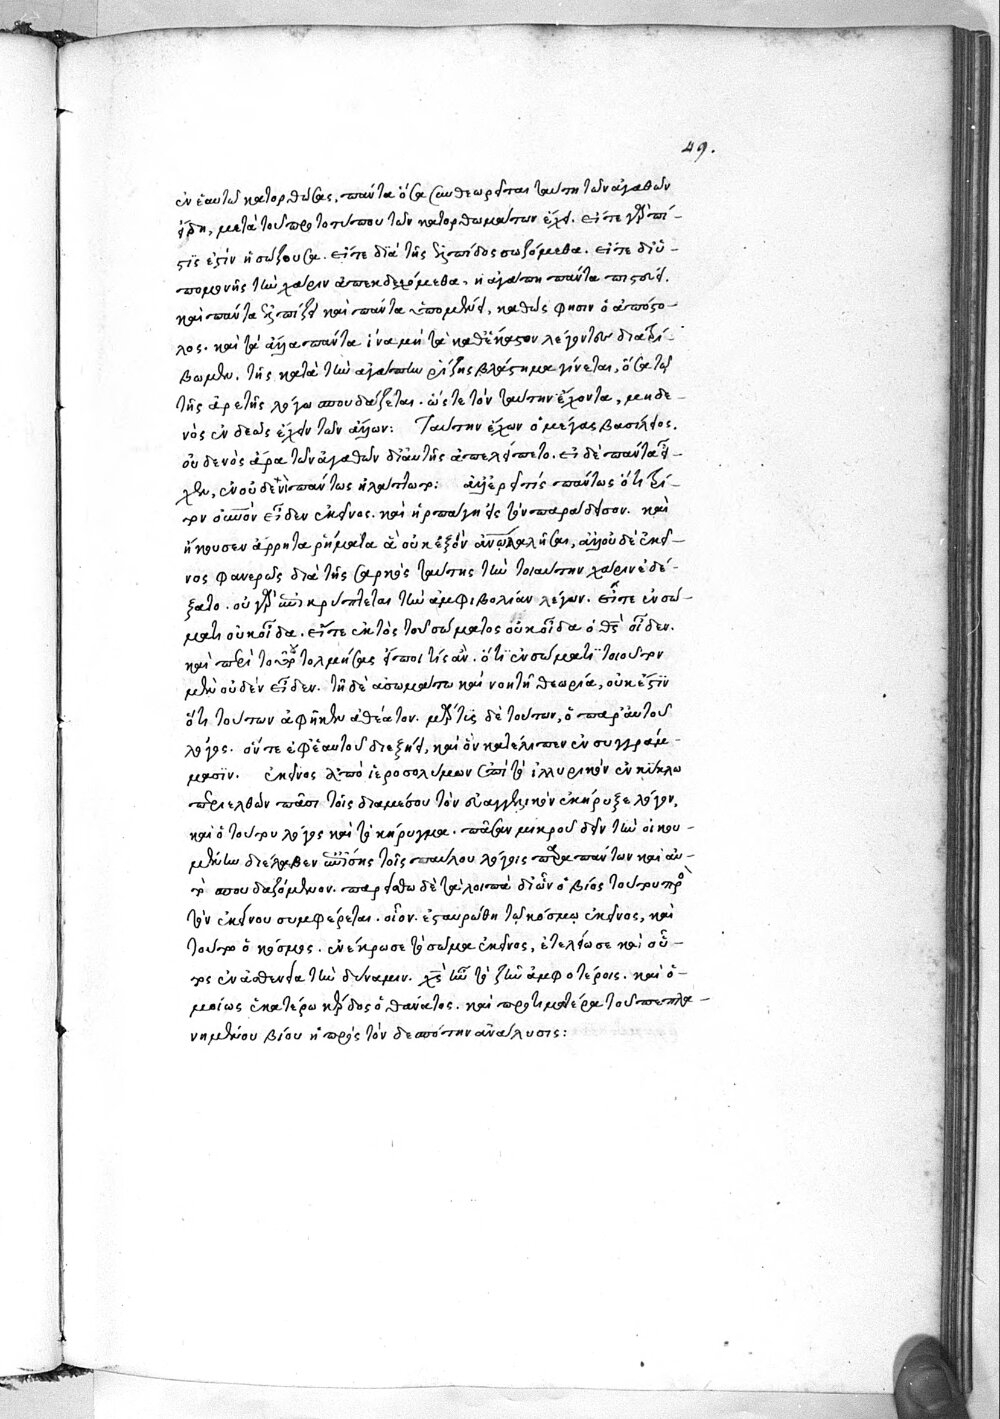 49.
ἐν ἑαυτῶ κατορθώσας, πάντα ὅσα συνθεωρεῖται ταύτη τῶν ἀγαθῶν
εἴδη, μετὰ τοῦ πρωτοτύπου τῶν κατορθωμάτων ἔχει. εἴτε γὰρ πί-
στις ἐστὶν ἡ σώζουσα. εἴτε διὰ τῆς ἐλπίδος σωζόμεθα. εἴτε δι' ὑ-
πομονῆς τὴν χάριν ἀπεκδεχόμεθα, ἡ ἀγάπη πάντα πιστεύει.
καὶ πάντα ἐλπίζει καὶ πάντα ὑπομένει, καθώς φησιν ὁ ἀπόστο-
λος. καὶ τὰ ἄλλα πάντα ἵνα μὴ τὰ καθέκαστον λέγοντες διατρί-
βωμεν. τῆς κατὰ τὴν ἀγάπην ῥίζης βλάστημα γίνεται, ὅσα τῶ
τῆς ἀρετῆς λόγω σπουδάζεται. ὥστε τὸν ταύτην ἔχοντα, μηδε-
νὸς ἐνδεῶς ἔχειν τῶν ἄλλων: Ταύτην ἔχων ὁ μέγας βασίλειος.
οὐδενὸς ἄρα τῶν ἀγαθῶν δι' αὐτῆς ἀπελείπετο. εἰ δὲ πάντα εἶ-
χεν, ἐν οὐδενὶ πάντως ἠλάττωτο: ἀλλ' ἐρεῖ τίς πάντως ὅτι τρί-
τον οὐρανὸν εἶδεν ἐκεῖνος. καὶ ἡρπάγη εἰς τὸν παράδεισον. καὶ
ἤκουσεν ἄρρητα ῥήματα ἃ οὐκ ἐξὸν ἀνθρώπω λαλῆσαι, ἀλλ' οὐδὲ ἐκεῖ-
νος φανερῶς διὰ τῆς σαρκὸς ταύτης τὴν τοιαύτην χάριν ἐδέ-
ξατο. οὐ γὰρ ἀποκρύπτεται τὴν ἀμφιβολίαν λέγων. εἴτε ἐν σώ-
ματι οὐκ οἶδα. εἴτε ἐκτὸς τοῦ σώματος οὐκ οἶδα ὁ θς οἶδεν.
καὶ περὶ τούτου τολμήσας εἴποι τίς ἂν. ὅτι ἐν σώματι τοιοῦτον
μὲν οὐδὲν εἶδεν. τῆ δὲ ἀσωμάτω καὶ νοητῆ θεωρία, οὐκ ἔστιν
ὅτι τούτων ἀφῆκεν ἀθέατον. μάρτυς δὲ τούτων, ὁ παρ' αὐτοῦ
λόγος. οὔτε ἐφ' ἑαυτοῦ διεξήει, καὶ ὃν κατέλιπεν ἐν συγγράμ-
μασιν. ἐκεῖνος ἀπὸ ἱεροσολύμων ἐπὶ τὸ ἰλλυρικὸν ἐν κύκλω
περιελθὼν πᾶσι τοῖς διαμέσου τὸν εὐαγγελικὸν ἐκήρυξε λόγον,
καὶ ὁ τούτου λόγος καὶ τὸ κήρυγμα. πᾶσαν μικροῦ δεῖν τὴν οἰκου-
μένην διέλαβεν ἐπίσης τοῖς παύλου λόγοις παρὰ πάντων καὶ αὐ-
τὸ σπουδαζόμενον. παρείσθω δὲ τὰ λοιπὰ δι' ὧν ὁ βίος τούτου πρὸς
τὸν ἐκείνου συμφέρεται. οἷον. ἐσταυρώθη τῷ κόσμῳ ἐκεῖνος, καὶ
τούτω ὁ κόσμος. ἐνέκρωσε τὸ σῶμα ἐκεῖνος, ἐτελείωσε καὶ οὗ-
τος ἐν ἀσθενεία τὴν δύναμιν. χς ἦν τὸ ζῆν ἀμφοτέροις. καὶ ὁ-
μοίως ἑκατέρω κέρδος ὁ θάνατος. καὶ προτιμοτέρα τοῦ πεπλα-
νημένου βίου ἡ πρὸς τὸν δεσπότην ἀνάλυσις: